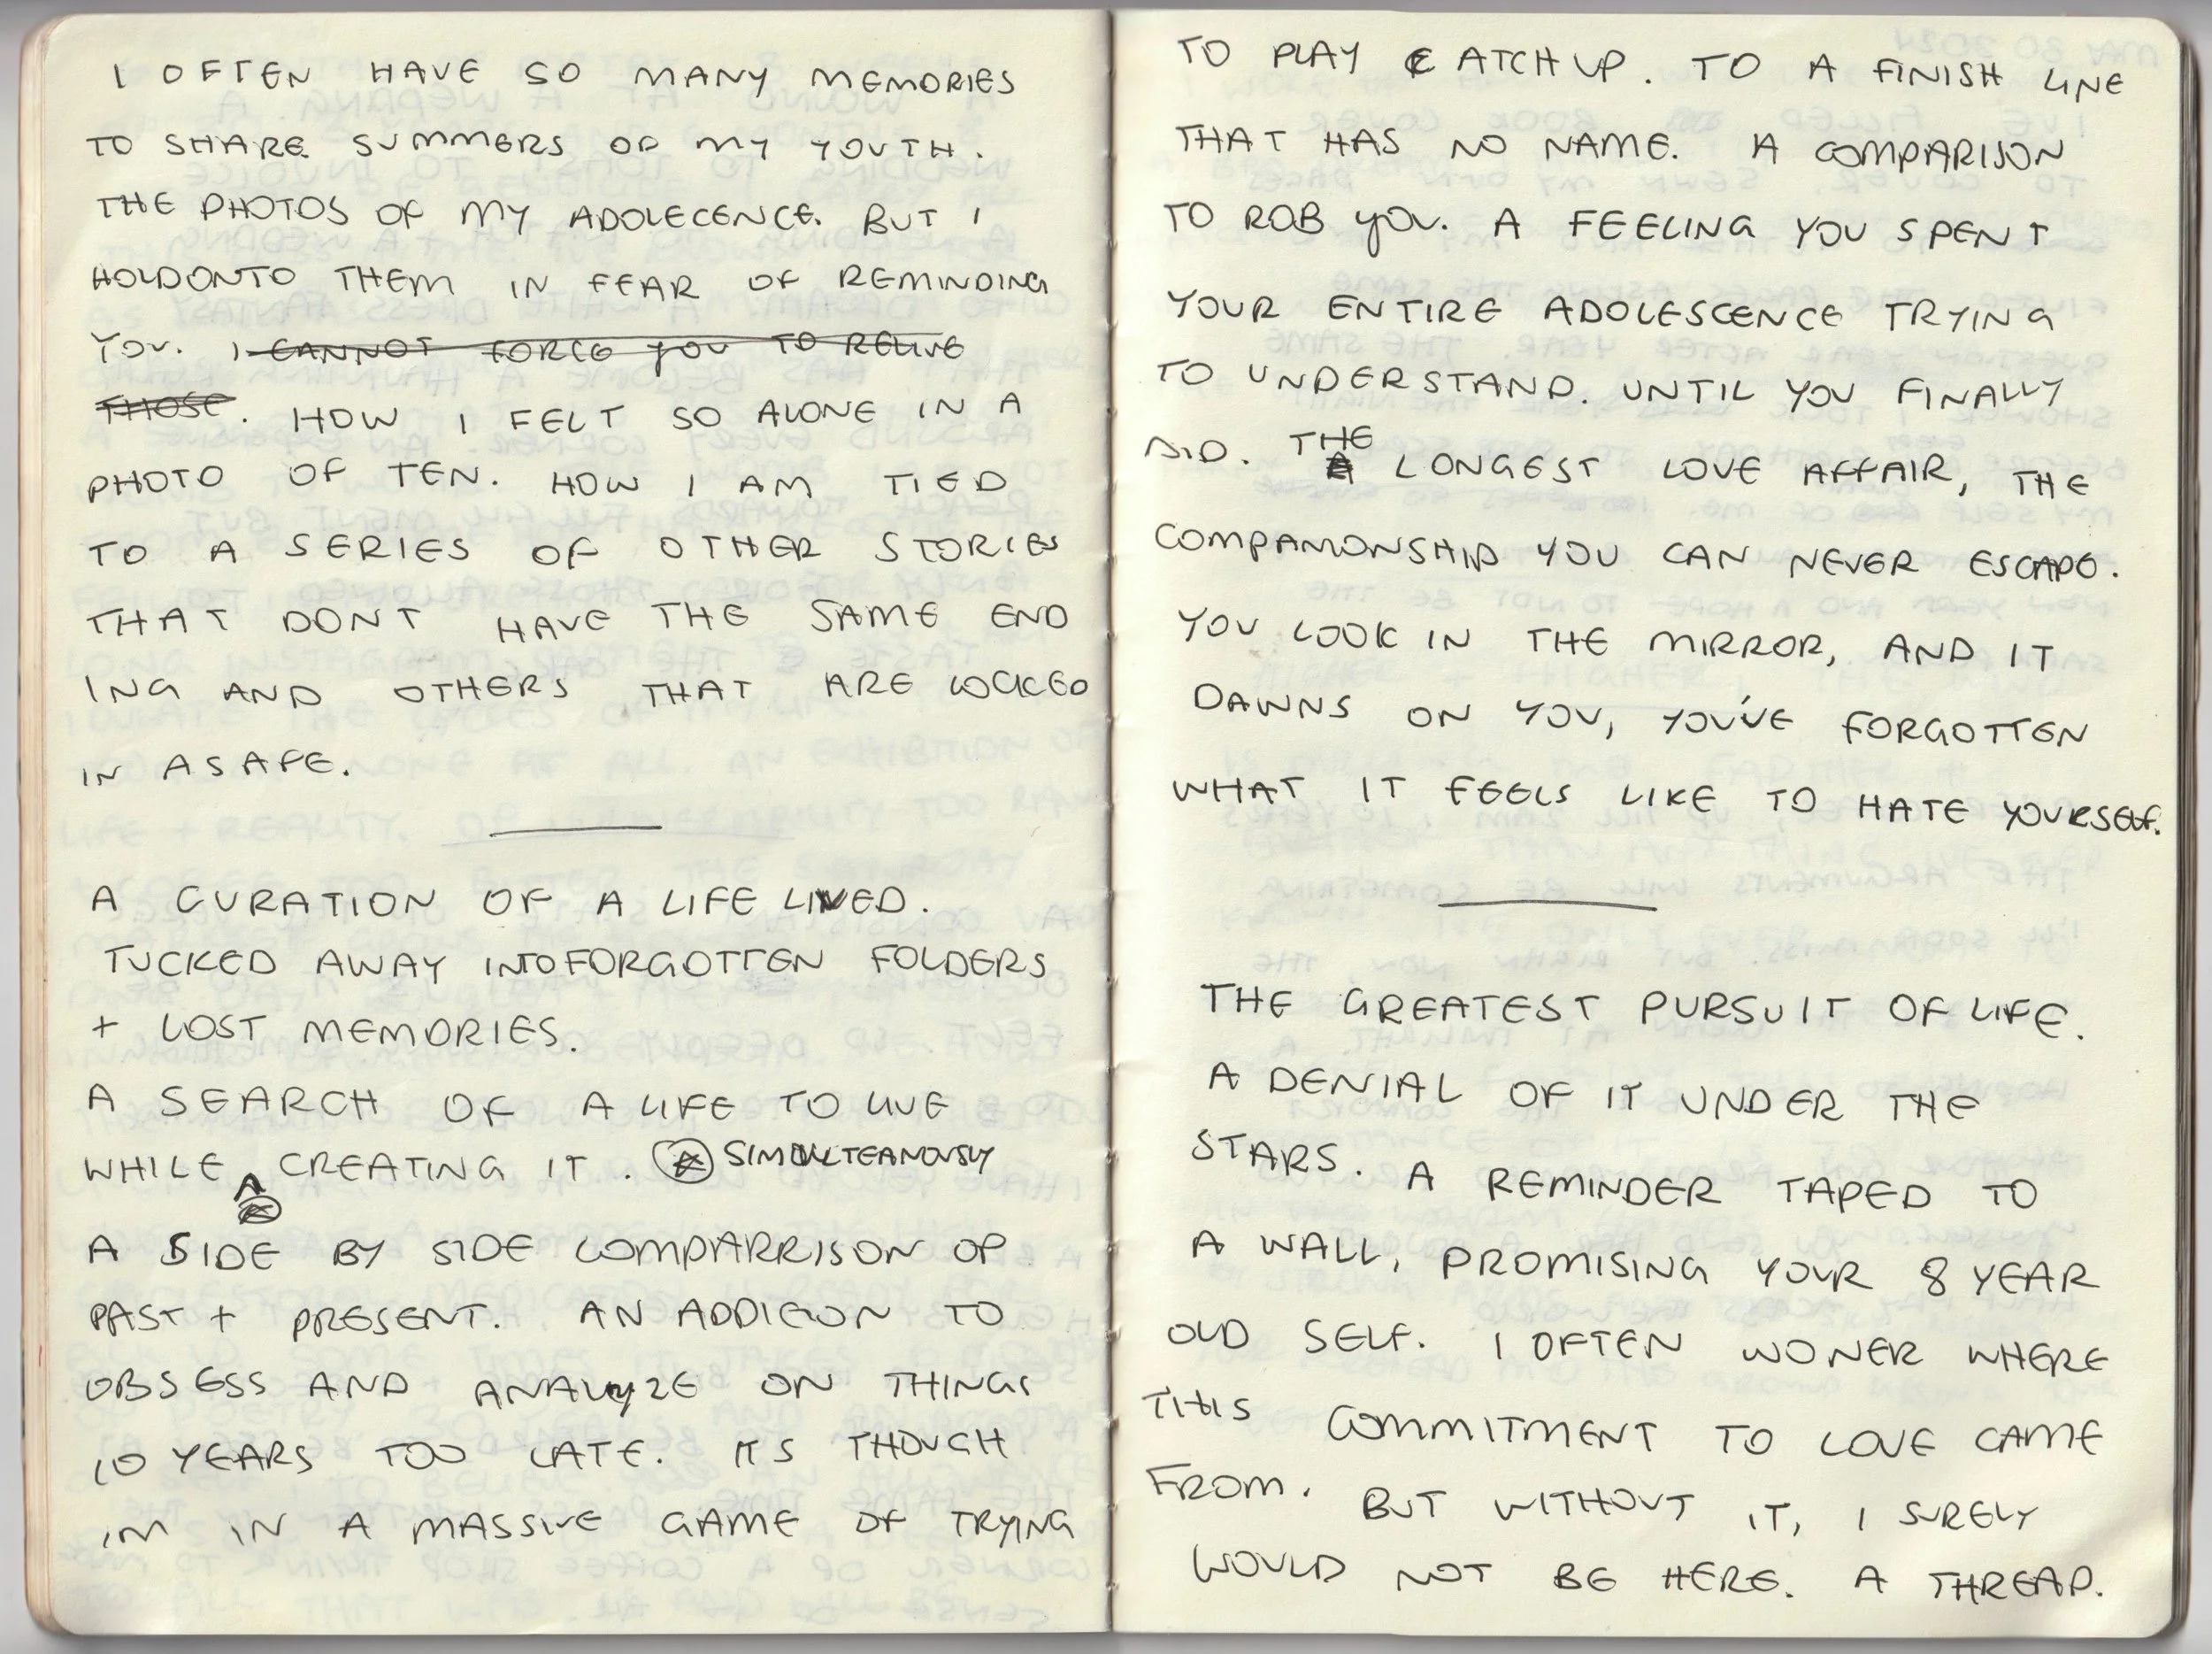 I OFTEN HAVE SO MANY MEMORIES
TO SHARE SUMMERS OF MY YOUTH.
THE PHOTOS OF MY ADOLECENCE. BUT I
HOLDONTO THEM IN FEAR OF REMINDING
YOU. I CANNOT FORCE YOU TO RELIVE
THOSE. HOW I FELT SO ALONE IN A
PHOTO OF TEN. HOW I AM TIED
TO A SERIES OF OTHER STORIES
THAT DONT HAVE THE SAME END
ING AND OTHERS THAT ARE LOCKED
IN A SAFE.
A CURATION OF A LIFE LIVED.
TUCKED AWAY INTO FORGOTTEN FOLDERS
+ LOST MEMORIES.
A SEARCH OF A LIFE TO LIVE
WHILE CREATING IT. SIMULTEANOUSLY
A SIDE BY SIDE COMPARRISON OF
PAST + PRESENT. AN ADDICION TO
OBSESS AND ANALYZE ON THINGS
10 YEARS TOO LATE. ITS THOUGH
IM IN A MASSIVE GAME OF TRYING
TO PLAY CATCH UP. TO A FINISH LINE
THAT HAS NO NAME. A COMPARISON
TO ROB YOU. A FEELING YOU SPENT
YOUR ENTIRE ADOLESCENCE TRYING
TO UNDERSTAND. UNTIL YOU FINALLY
DID. THE LONGEST LOVE AFFAIR, THE
COMPANIONSHIP YOU CAN NEVER ESCAPE.
YOU LOOK IN THE MIRROR, AND IT
DAWNS ON YOU, YOU'VE FORGOTTEN
WHAT IT FEELS LIKE TO HATE YOURSELF.
THE GREATEST PURSUIT OF LIFE.
A DENIAL OF IT UNDER THE
STARS. A REMINDER TAPED TO
A WALL, PROMISING YOUR 8 YEAR
OLD SELF. I OFTEN WONER WHERE
THIS COMMITMENT TO LOVE CAME
FROM. BUT WITHOUT IT, I SURELY
WOULD NOT BE HERE. A THREAD.